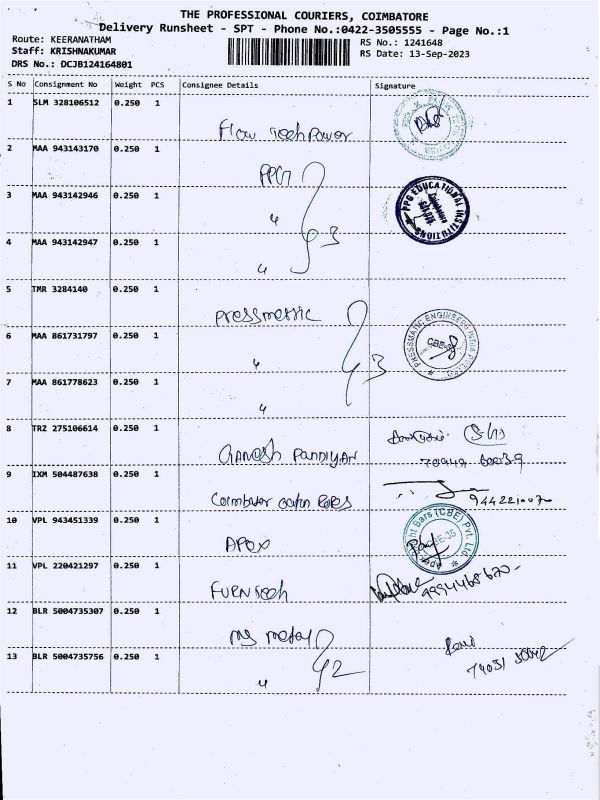 THE PROFESSIONAL COURIERS, COIMBATORE
Delivery Runsheet - SPT - Phone No.:0422-3505555 - Page No.:1
Route: KEERANATHAM
RS No.: 1241648
Staff: KRISHNAKUMAR
RS Date: 13-Sep-2023
DRS No.: DCJB124164801
S No Consignment No Weight PCS Consignee Details Signature
1 SLM 328106512 0.250 1
Flow Tech Power
2 MAA 943143170 0.250 1
PPG
PPG EDUCATIONAL INSTITUTIONS
3 MAA 943142946 0.250 1
" 3
4 MAA 943142947 0.250 1
"
5 TMR 3284140 0.250 1
Pressmatic
PRESSMATIC ENGINEERS INDIA
CBE-
6 MAA 861731797 0.250 1
" 3
7 MAA 861778623 0.250 1
"
8 TRZ 275106614 0.250 1
Ganesh Pandiyan
9 IXM 504487638 0.250 1
Coimbatore
10 VPL 943451339 0.250 1
Apex
ht Bars (CBE) Pvt. Ltd.
CBE-35
11 VPL 220421297 0.250 1
Furn Tech
12 BLR 5004735307 0.250 1
MS metal
13 BLR 5004735756 0.250 1
" 2